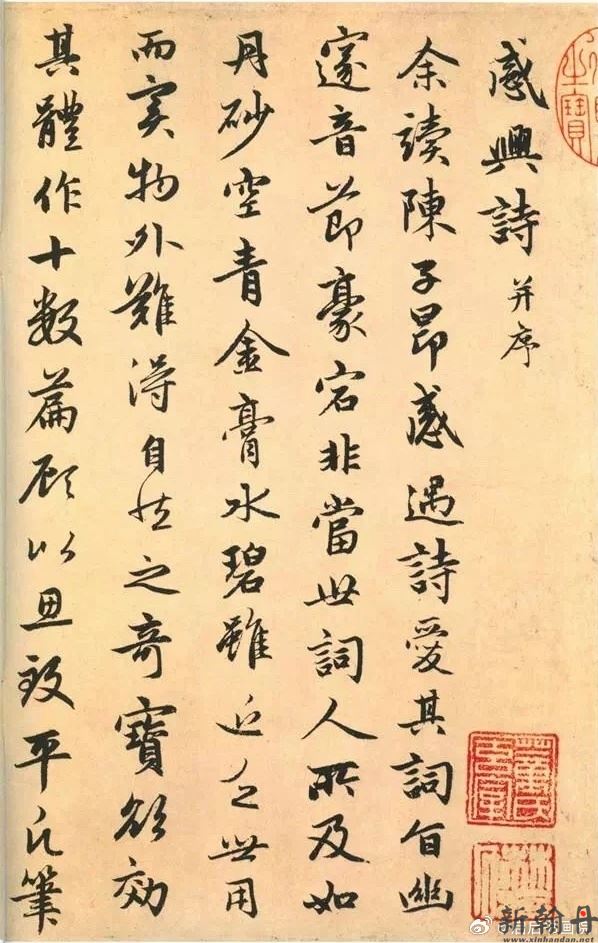 感興詩 并序
余讀陳子昂感遇詩愛其詞旨幽
邃音節豪宕非當世詞人所及如
丹砂空青金膏水碧雖近乏世用
而實物外難得自然之奇寶欲効
其體作十數篇顧以思致平凡筆
新翰丹
www.xinhandan.net